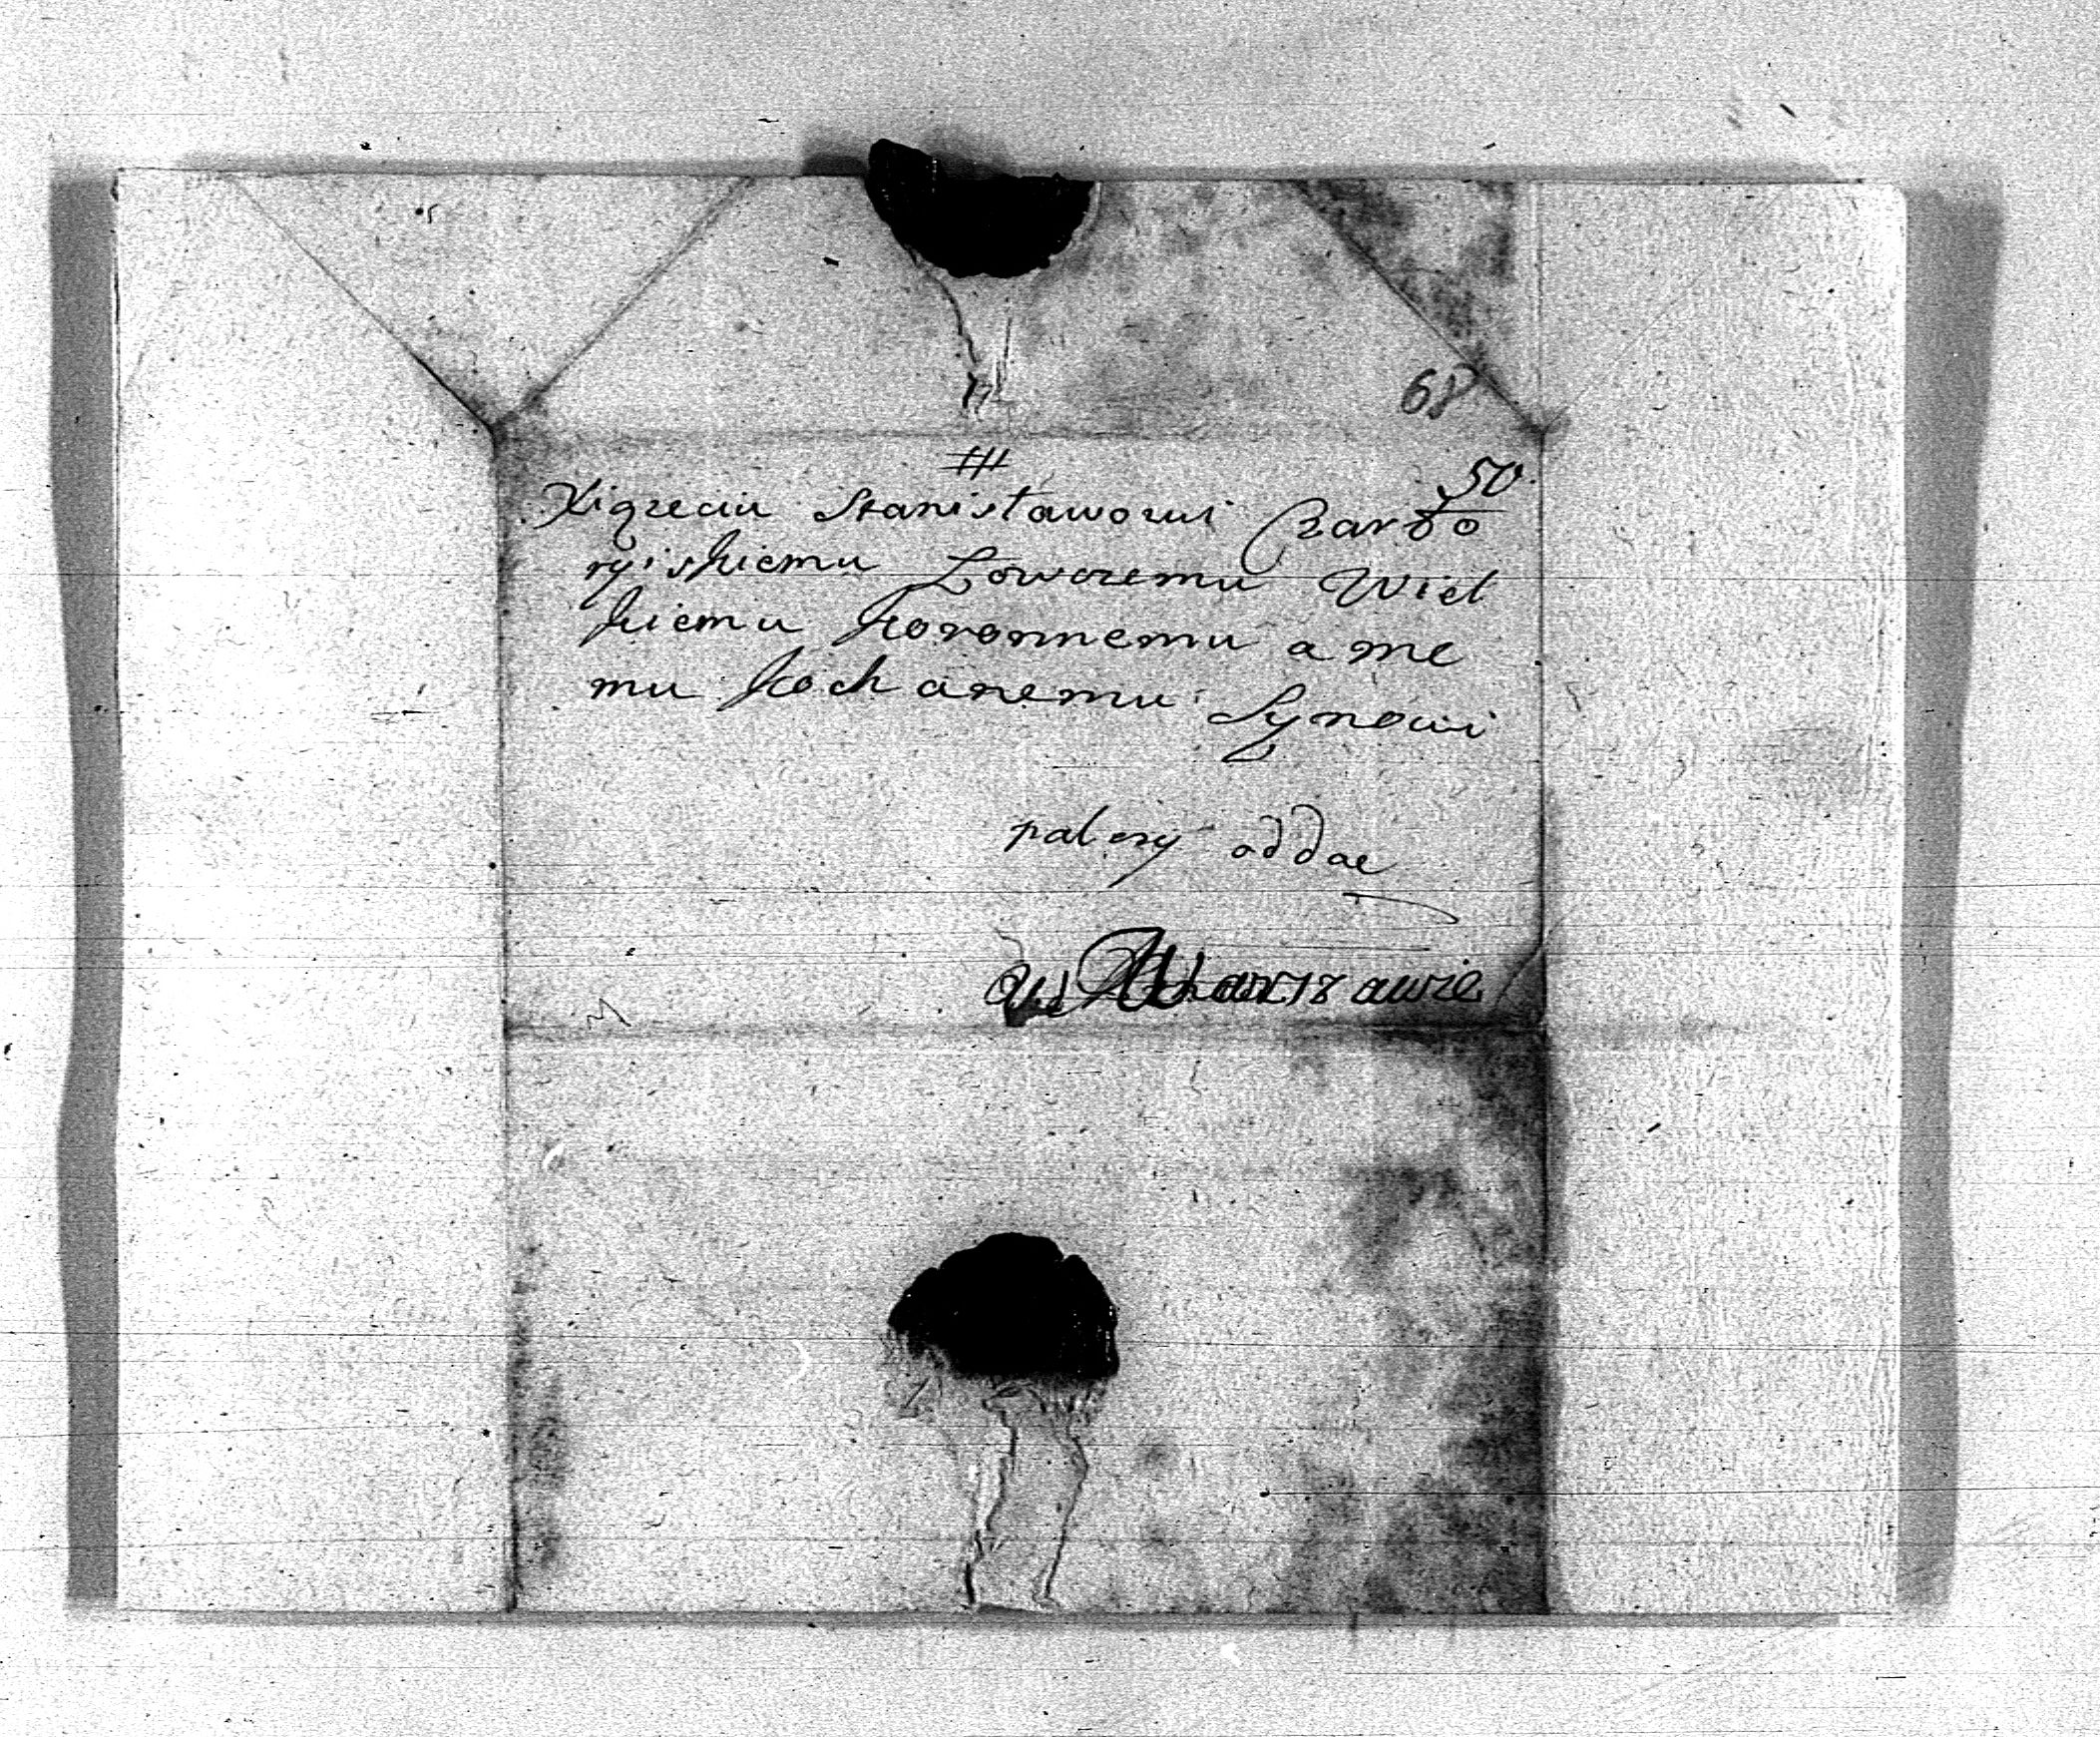 68
50.
Xiązeciu Stanisławowi Czarto
ryiskiemu Łowczemu Wiel
kiemu Koronnemu a me
mu kochanemu Synowi
nalezy oddac
w Warszawie